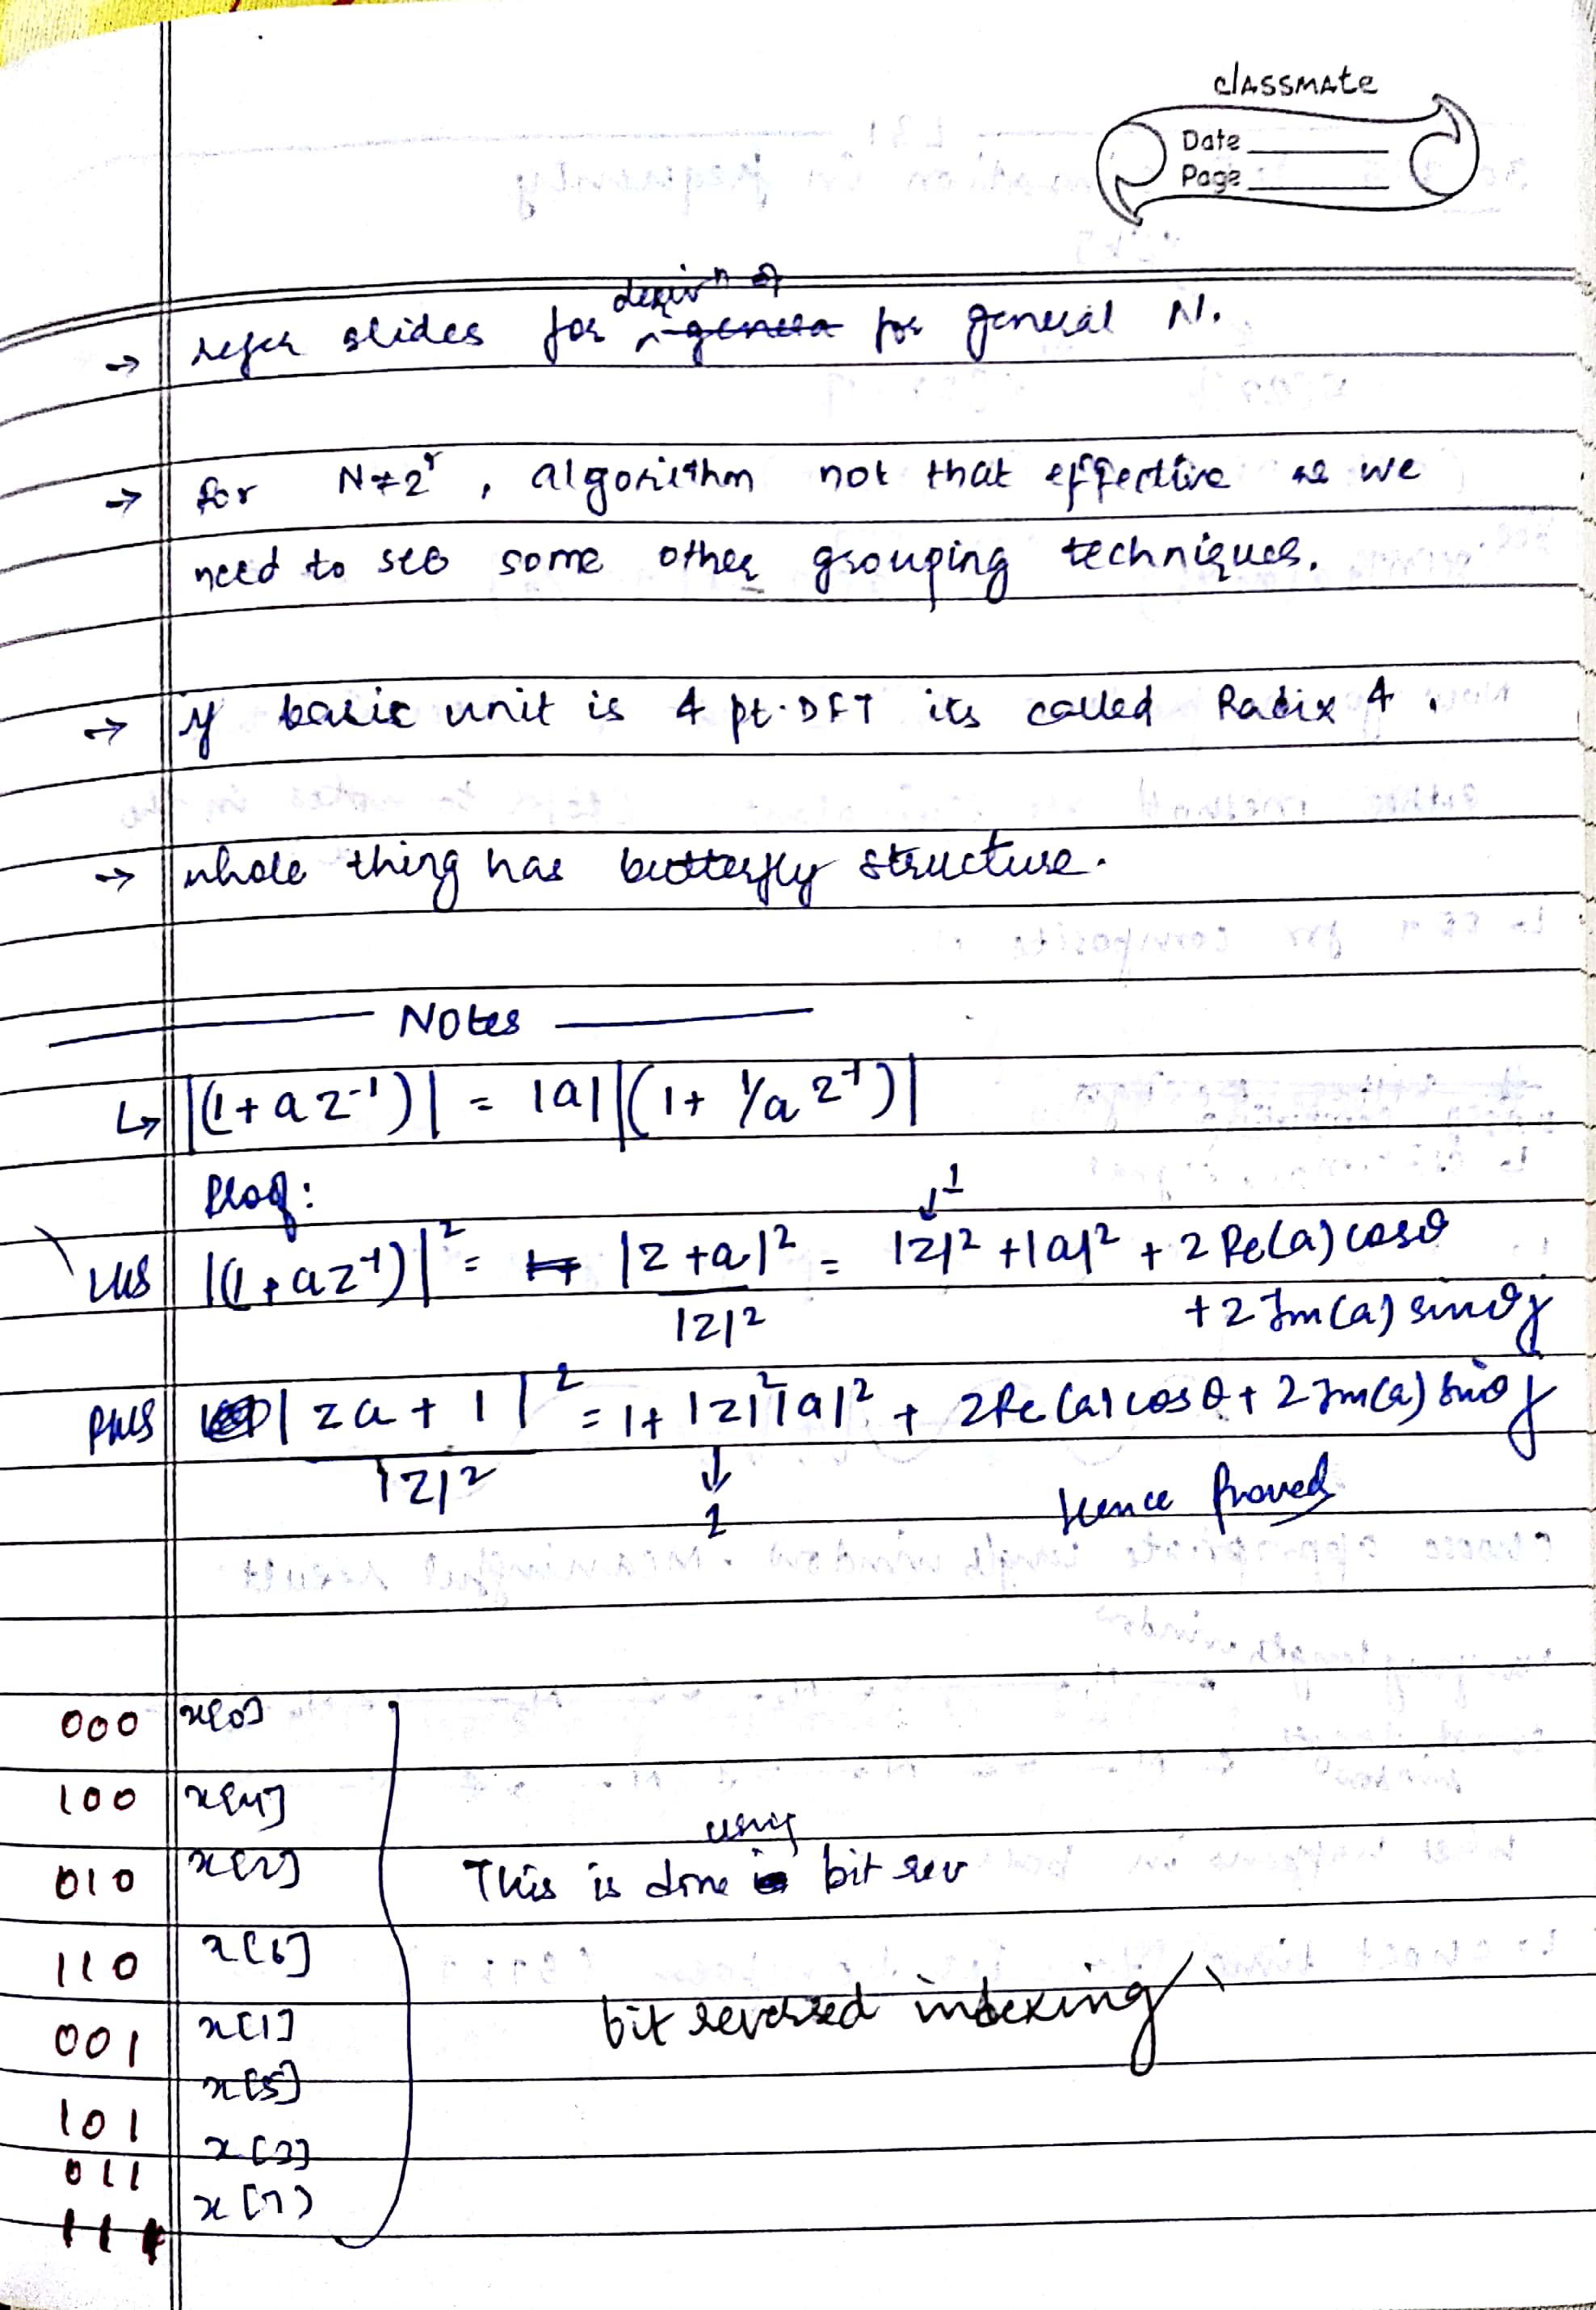 classmate
Date
Page
→ refer slides for derivⁿ of for general N.
→ for N≠2^r, algorithm not that effective as we
need to see some other grouping techniques.
→ if basic unit is 4 pt. DFT its called Radix 4.
→ whole thing has butterfly structure.
Notes
↳ |(1+az⁻¹)| = |a||(1+ 1/a z⁻¹)|
Proof:
LHS |(1+az⁻¹)|² = |z+a|²/|z|² = |z|² + |a|² + 2Re(a)cosθ
↓ 1
+ 2Im(a) sinθj
RHS |za+1|²/|z|² = 1+|z|²|a|² + 2Re(a)cosθ + 2Im(a) sinθj
↓
1
Hence Proved
000 x[0]
100 x[4]
using
010 x[2] This is done bit rev
110 x[6]
bit reversed indexing
001 x[1]
101 x[5]
011 x[3]
111 x[7]